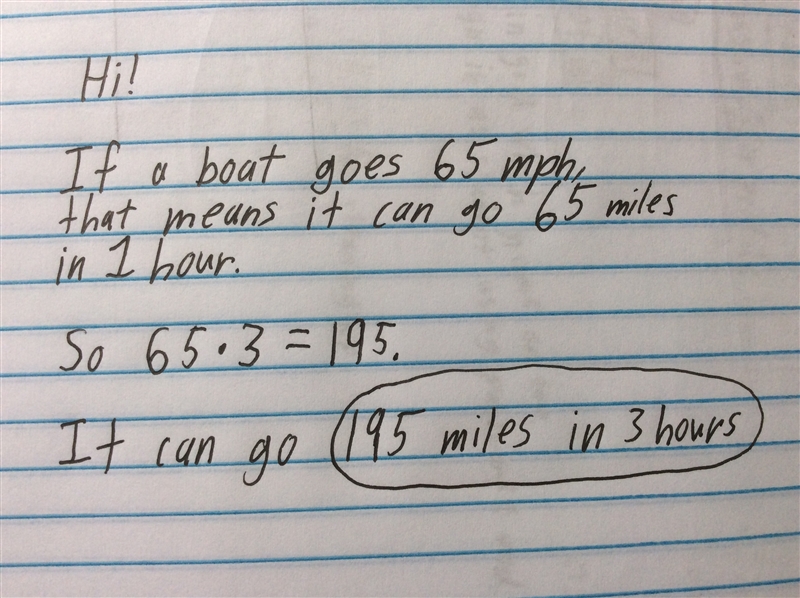 Hi!
If a boat goes 65 mph,
that means it can go 65 miles
in 1 hour.
So 65·3 = 195.
It can go 195 miles in 3 hours